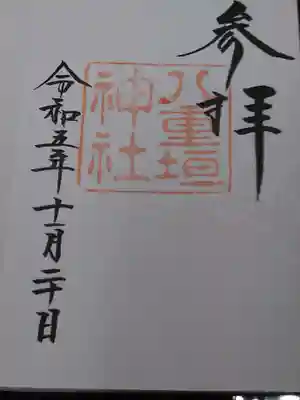 参拝
八重垣
神社
令和五年十一月二十日